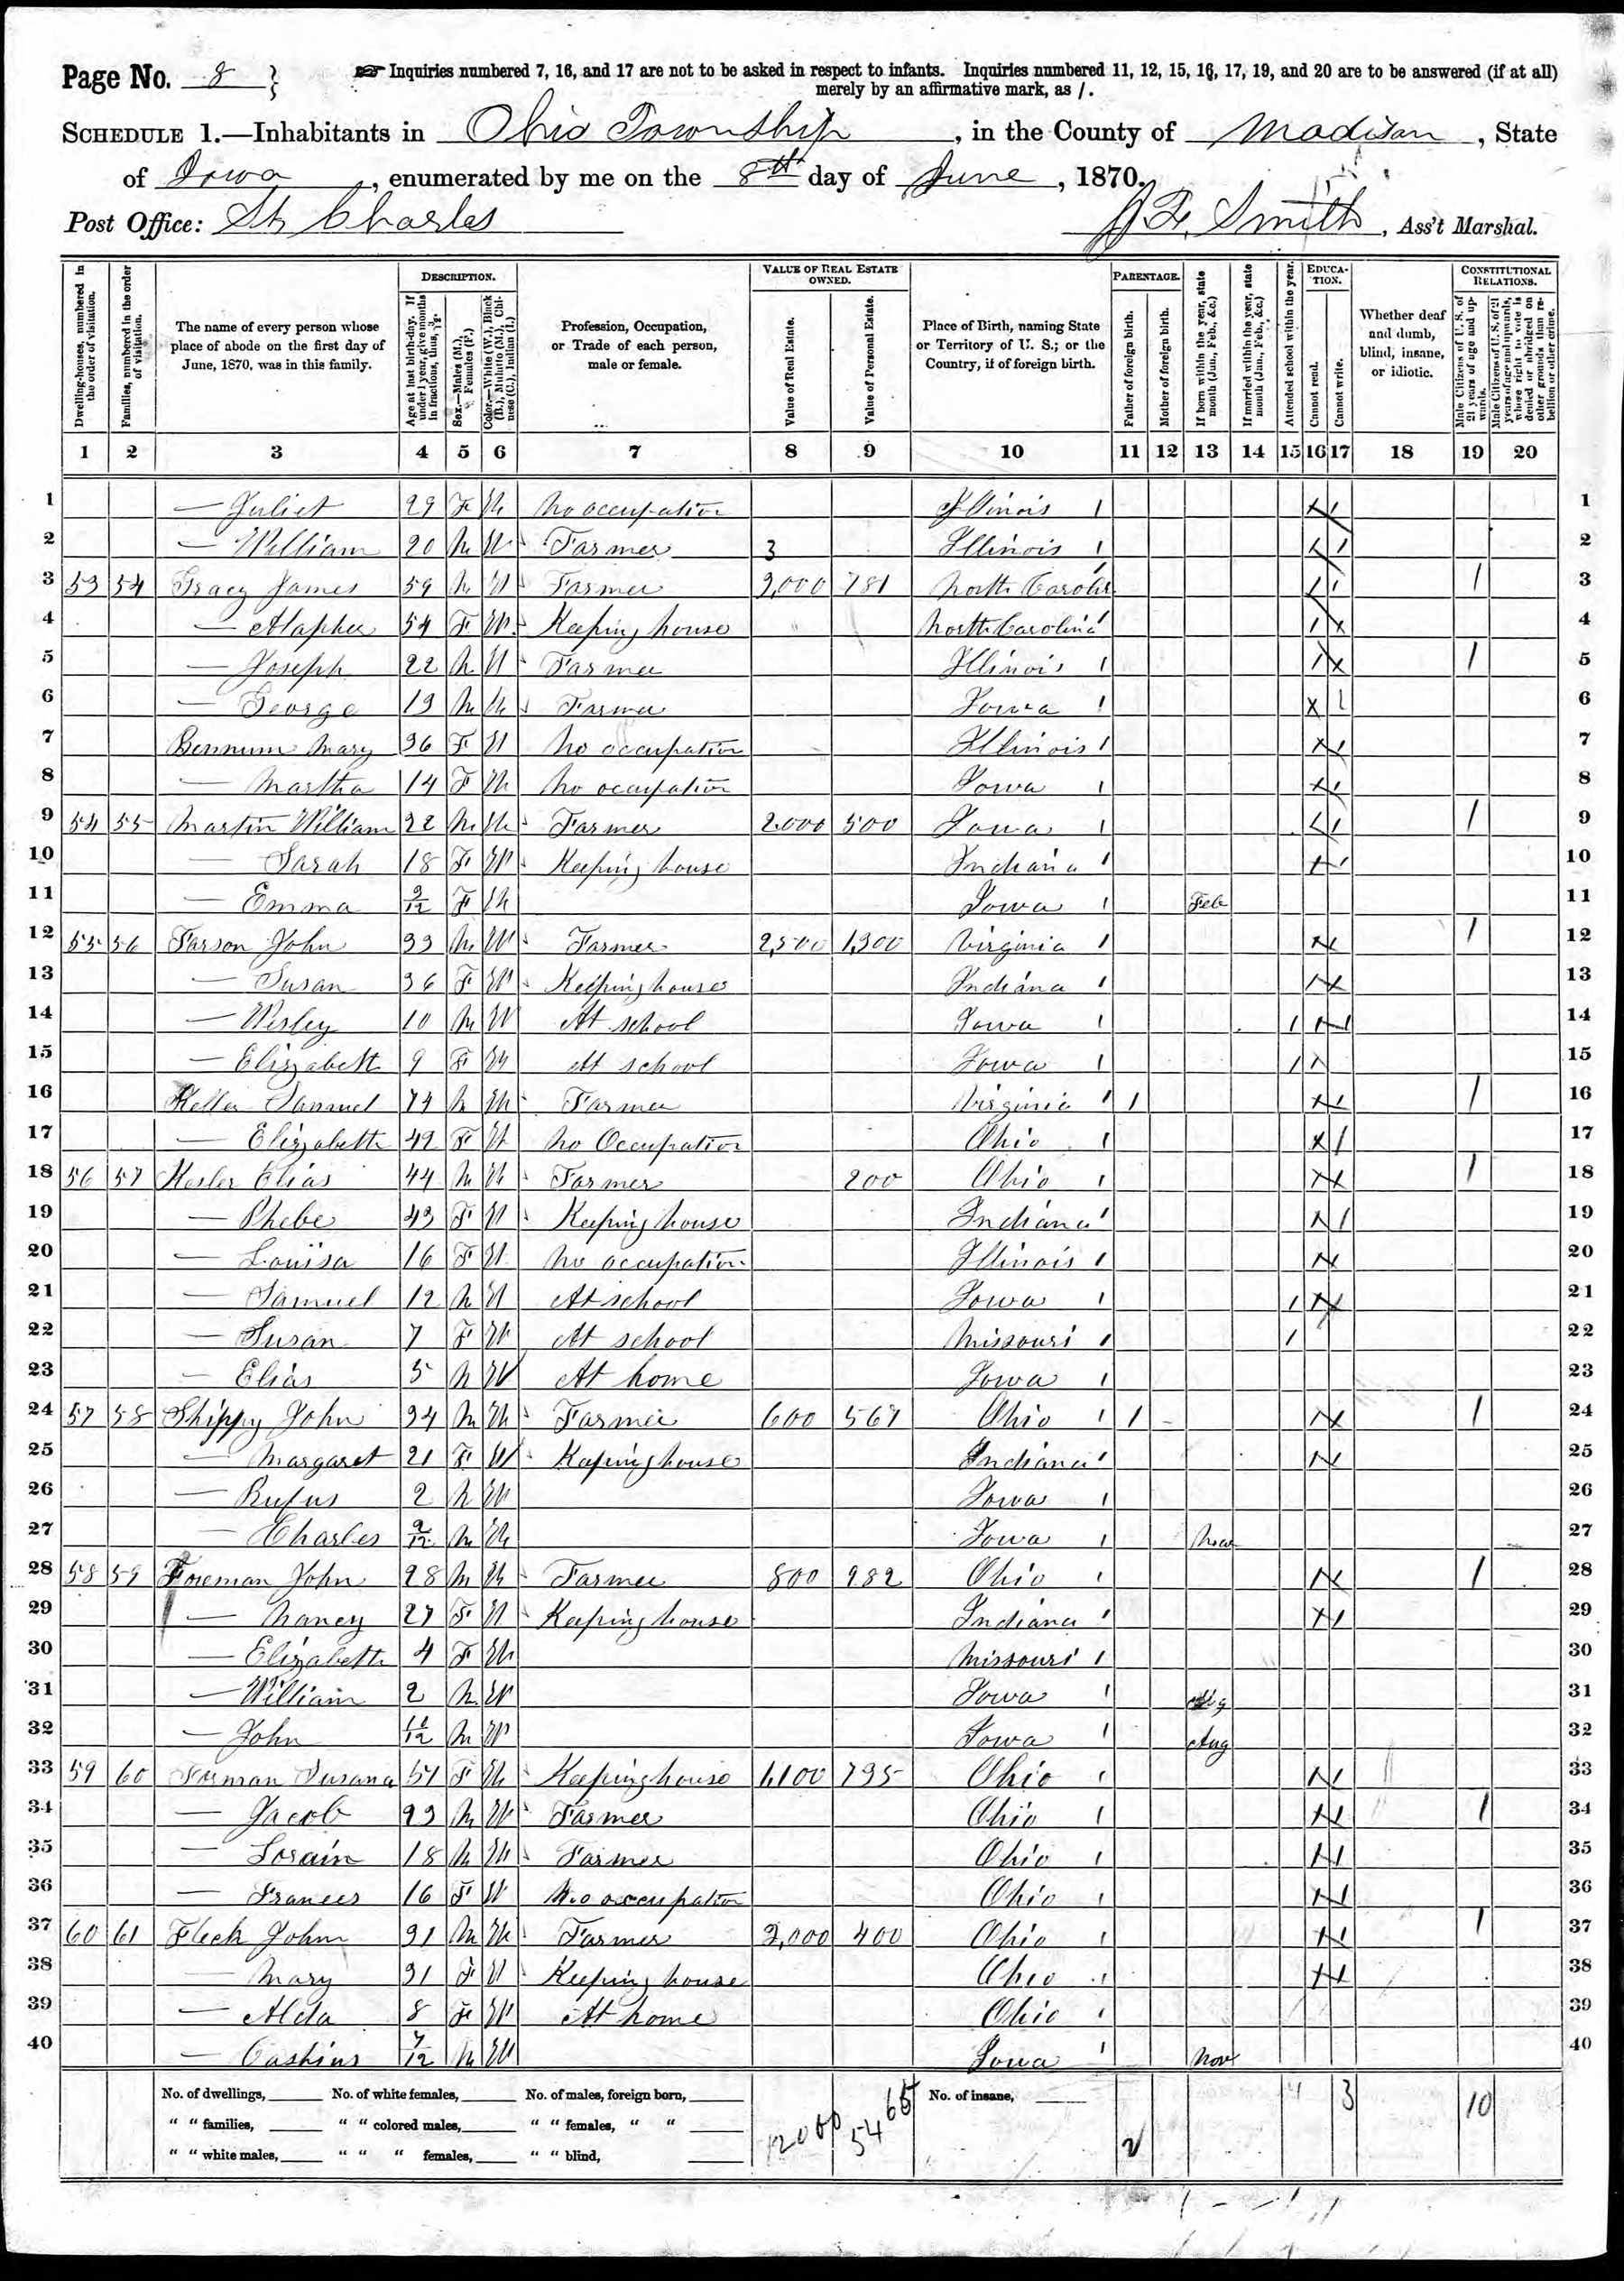 Page No. 8
☞ Inquiries numbered 7, 16, and 17 are not to be asked in respect to infants. Inquiries numbered 11, 12, 15, 16, 17, 19, and 20 are to be answered (if at all)
merely by an affirmative mark, as /.
SCHEDULE 1.—Inhabitants in Ohio Township, in the County of Madison, State
of Iowa, enumerated by me on the 8th day of June, 1870.
Post Office: St Charles
Smith, Ass't Marshal.
Dwelling-houses, numbered in the order of visitation.
Families, numbered in the order of visitation.
The name of every person whose place of abode on the first day of June, 1870, was in this family.
DESCRIPTION.
Age at last birth-day. If under 1 year, give months in fractions, thus, 3/12.
Sex.—Males (M.), Females (F.)
Color.—White (W.), Black (B.), Mulatto (M.), Chinese (C.), Indian (I.)
Profession, Occupation, or Trade of each person, male or female.
VALUE OF REAL ESTATE OWNED.
Value of Real Estate.
Value of Personal Estate.
Place of Birth, naming State or Territory of U. S.; or the Country, if of foreign birth.
PARENTAGE.
Father of foreign birth.
Mother of foreign birth.
If born within the year, state month (Jan., Feb., &c.)
If married within the year, state month (Jan., Feb., &c.)
Attended school within the year.
EDUCATION.
Cannot read.
Cannot write.
Whether deaf and dumb, blind, insane, or idiotic.
CONSTITUTIONAL RELATIONS.
Male Citizens of U. S. of 21 years of age and upwards.
Male Citizens of U. S. of 21 years of age and upwards, whose right to vote is denied or abridged on other grounds than rebellion or other crime.
1 2 3 4 5 6 7 8 9 10 11 12 13 14 15 16 17 18 19 20
1 — Juliet 29 F W No occupation Illinois 1
2 — William 20 M W Farmer Illinois 2
3 53 54 James 59 M W Farmer 781 North Carolin 3
4 — 54 F W Keeping house North Carolina 4
5 — Joseph 22 M W Farmer Illinois 5
6 — George 19 M W Farmer Iowa 6
7 Bennum Mary 36 F W No occupation Illinois 7
8 — Martha 14 F W No occupation Iowa 8
9 54 55 Martin William 22 M W Farmer 2000 500 Iowa 9
10 — Sarah 18 F W Keeping house Indiana 10
11 — Emma /12 F W Iowa Feb 11
12 55 56 John 33 M W Farmer 2,500 1,300 Virginia 12
13 — Susan 36 F W Keeping house Indiana 13
14 — Wesley 10 M W At school Iowa 14
15 — Elizabeth 9 F W At school Iowa 15
16 Samuel 74 M W Farmer Virginia 16
17 — Elizabeth 42 F W No Occupation Ohio 17
18 56 57 Elias 44 M W Farmer 200 Ohio 18
19 — Phebe 43 F W Keeping house Indiana 19
20 — Louisa 16 F W No occupation Illinois 20
21 — Samuel 12 M W At school Iowa 21
22 — Susan 7 F W At school Missouri 22
23 — Elias 5 M W At home Iowa 23
24 57 58 Shippy John 34 M W Farmer 600 567 Ohio 24
25 — Margaret 21 F W Keeping house Indiana 25
26 — Rufus 2 M W Iowa 26
27 — Charles /12 M W Iowa 27
28 58 59 Foreman John 28 M W Farmer 800 982 Ohio 28
29 — Nancy 27 F W Keeping house Indiana 29
30 — Elizabeth 4 F W Missouri 30
31 — William 2 M W Iowa 31
32 — John 11/12 M W Iowa Aug 32
33 59 60 Forman Susana 51 F W Keeping house 1,100 735 Ohio 33
34 — Jacob 23 M W Farmer Ohio 34
35 — Lorain 18 M W Farmer Ohio 35
36 — Frances 16 F W No occupation Ohio 36
37 60 61 Fleck John 31 M W Farmer 400 Ohio 37
38 — Mary 31 F W Keeping house Ohio 38
39 — Alda 8 F W At home Ohio 39
40 — 7/12 M W Iowa Nov 40
No. of dwellings, No. of white females, No. of males, foreign born, No. of insane,
" " families, " " colored males, " " females, " "
" " white males, " " " females, " " blind,
12000 5465 2 4 3 10